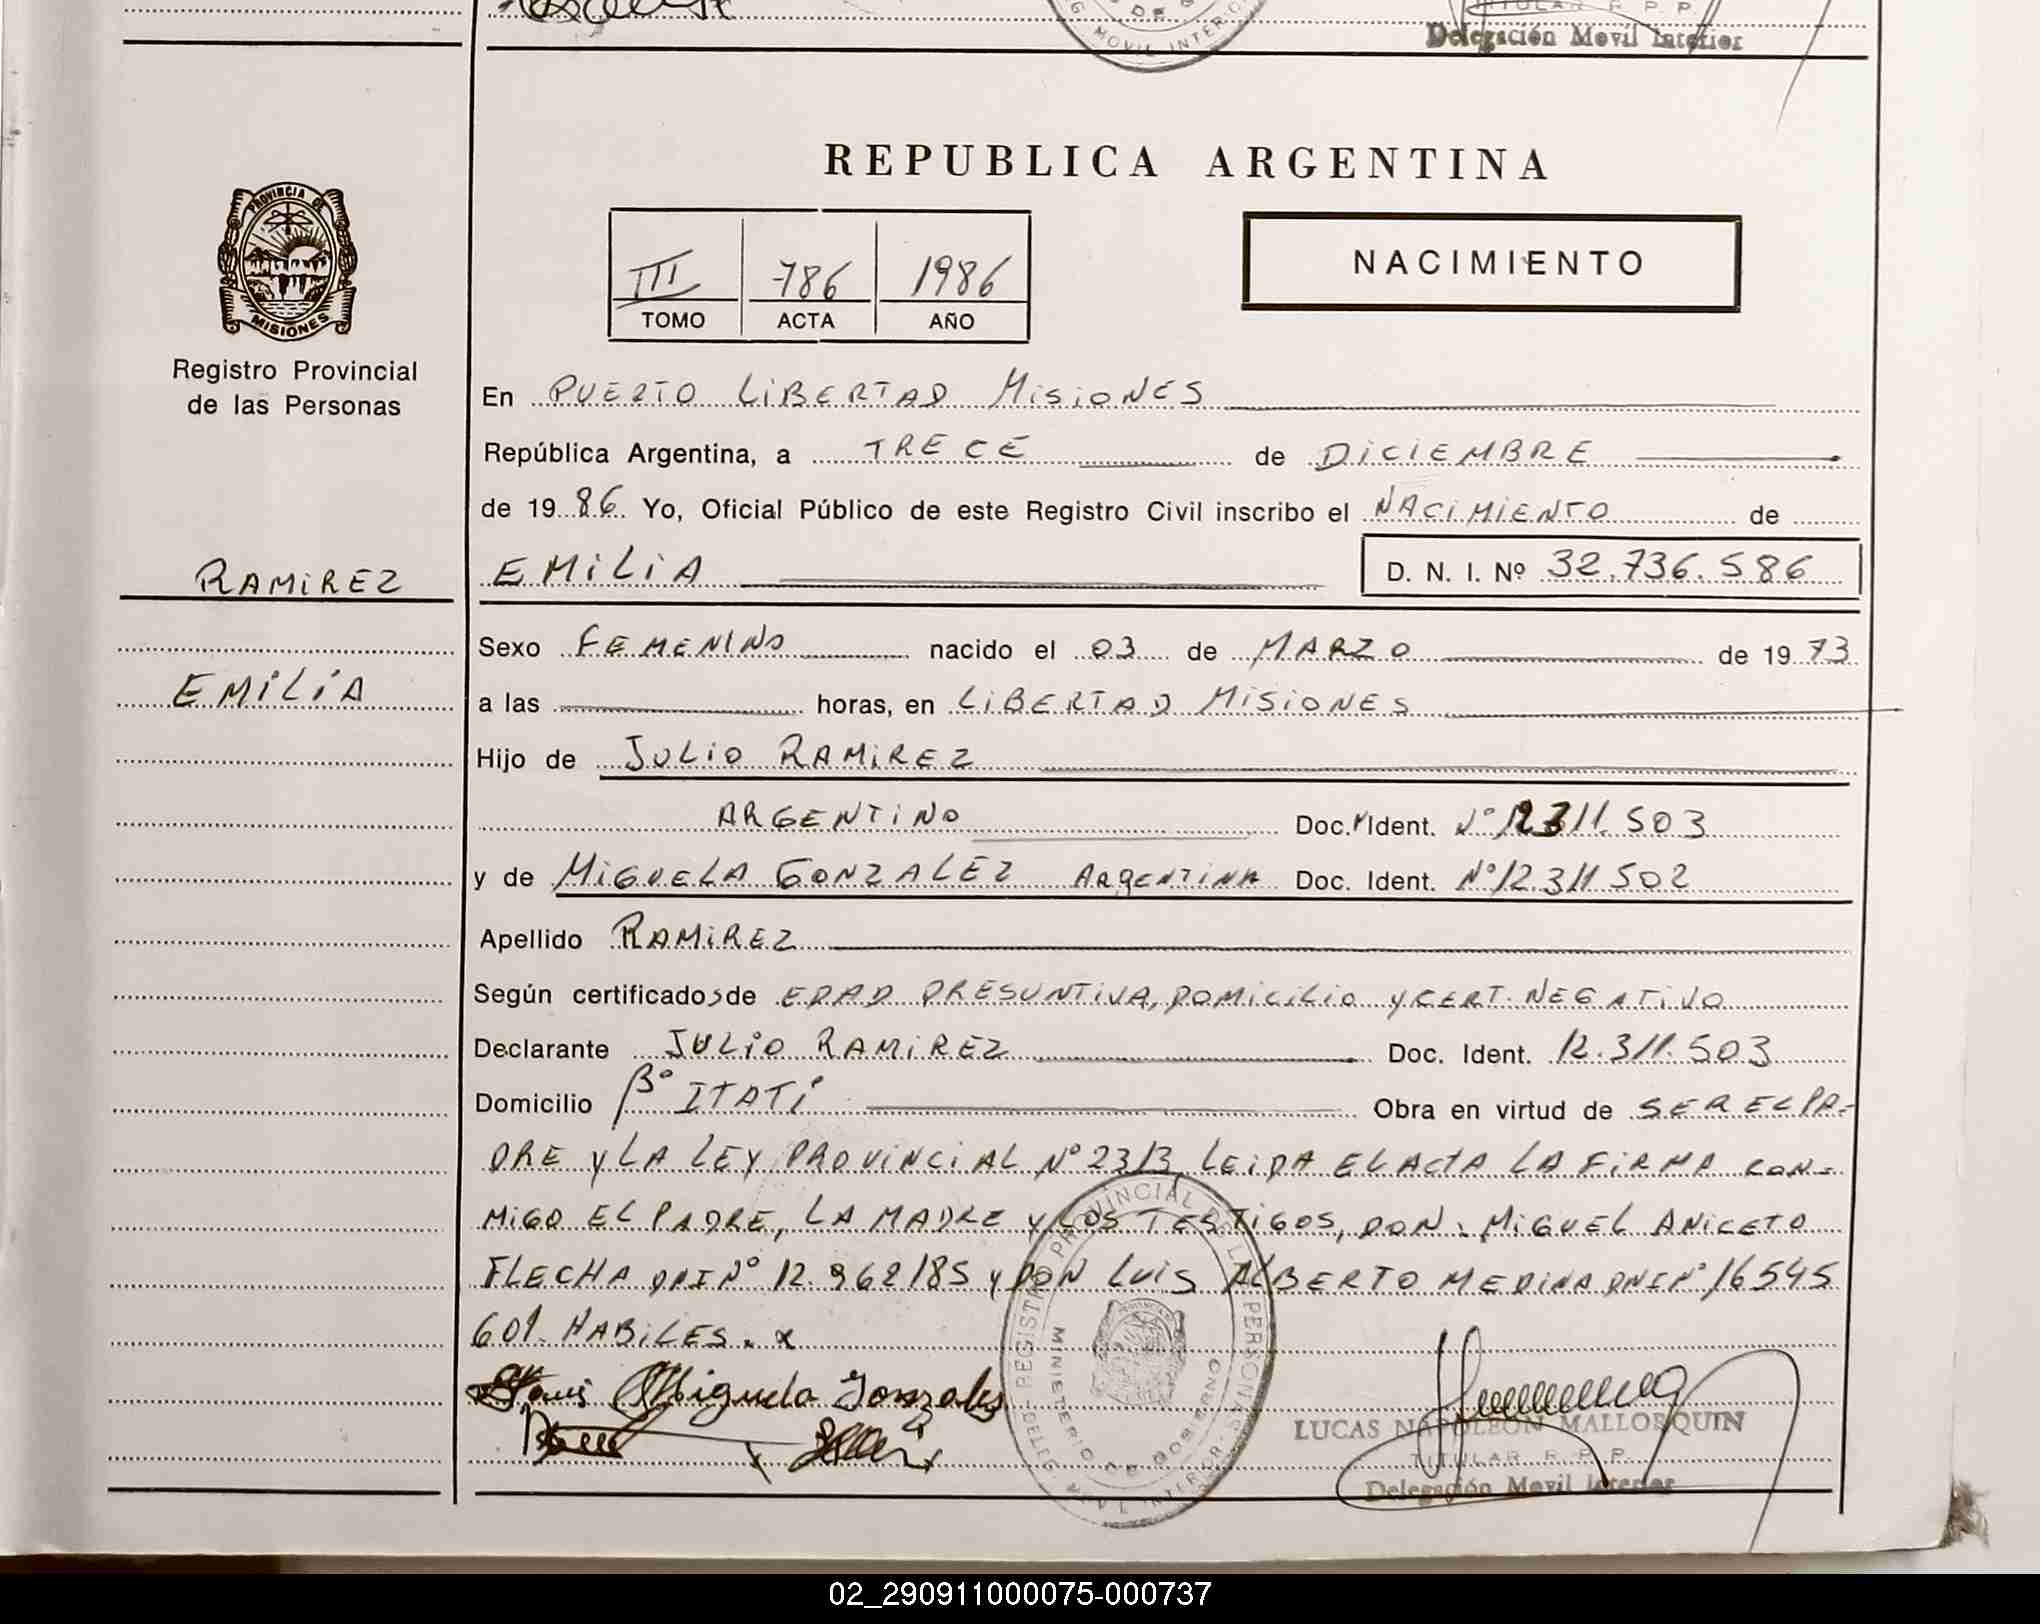 TITULAR R. P. P.
MOVIL INTERIOR
Delegación Movil Interior
REPUBLICA ARGENTINA
PROVINCIA DE
MISIONES
III 786 1986
TOMO ACTA AÑO
NACIMIENTO
Registro Provincial
de las Personas
En PUERTO LIBERTAD MISIONES
República Argentina, a TRECE de DICIEMBRE
de 1986 Yo, Oficial Público de este Registro Civil inscribo el NACIMIENTO de
RAMIREZ
EMILIA D. N. I. Nº 32.736.586
Sexo FEMENINO nacido el 03 de MARZO de 1973
EMILIA
a las horas, en LIBERTAD MISIONES
Hijo de JULIO RAMIREZ
ARGENTINO Doc. Ident. Nº 12311.503
y de MIGUELA GONZALEZ ARGENTINA Doc. Ident. Nº 12.311 502
Apellido RAMIREZ
Según certificados de EDAD PRESUNTIVA, DOMICILIO Y CERT. NEGATIVO
Declarante JULIO RAMIREZ Doc. Ident. 12.311.503
Domicilio Bº ITATÍ Obra en virtud de SER EL PA-
DRE Y LA LEY PROVINCIAL Nº 2313 LEIDA EL ACTA LA FIRMA CON-
MIGO EL PADRE, LA MADRE Y LOS TESTIGOS, DON: MIGUEL ANICETO
FLECHA DNI Nº 12.962185 Y DON LUIS ALBERTO MEDINA DNI Nº 16545
601. HABILES. x
Miguela Gonzales
REGISTRO PROVINCIAL DE LAS PERSONAS
MINISTERIO DE GOBIERNO
DELEG. MOVIL INTERIOR
LUCAS NAPOLEON MALLORQUIN
TITULAR R. P. P.
Delegación Movil Interior
02_290911000075-000737